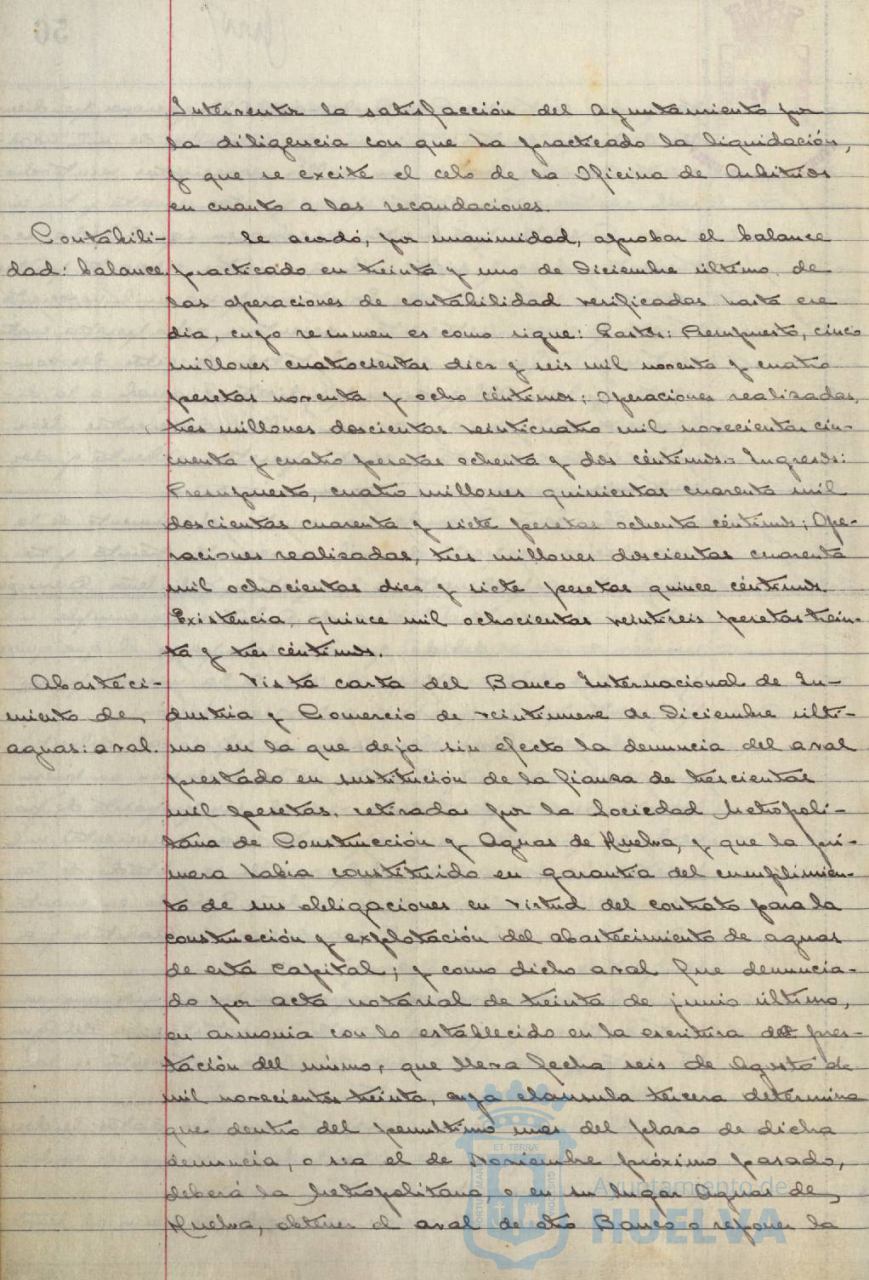 Interventor la satisfacción del Ayuntamiento por
la diligencia con que ha practicado la liquidación,
y que se excite el celo de la Oficina de Arbitrios
en cuanto a las recaudaciones.
Contabili- Se acordó, por unanimidad, aprobar el balance
dad: balance. practicado en treinta y uno de Diciembre último, de
las operaciones de contabilidad verificadas hasta ese
día, cuyo resumen es como sigue: Gastos: Presupuesto, cinco
millones cuatrocientas diez y seis mil noventa y cuatro
pesetas noventa y ocho céntimos; Operaciones realizadas,
tres millones doscientas veinticuatro mil novecientas cin-
cuenta y cuatro pesetas ochenta y dos céntimos.- Ingresos:
Presupuesto, cuatro millones quinientas cuarenta mil
doscientas cuarenta y siete pesetas ochenta céntimos; Ope-
raciones realizadas, tres millones doscientas cuarenta
mil ochocientas diez y siete pesetas quince céntimos.
Existencia, quince mil ochocientas veintiseis pesetas trein-
ta y tres céntimos.
Abasteci- Vista carta del Banco Internacional de In-
miento de dustria y Comercio de veintinueve de Diciembre últi-
aguas: aval. mo en la que deja sin efecto la denuncia del aval
prestado en sustitución de la fianza de trescientas
mil pesetas, retiradas por la Sociedad Metropoli-
tana de Construcción y Aguas de Huelva, y que la pri-
mera había constituido en garantía del cumplimien-
to de sus obligaciones en virtud del contrato para la
construcción y explotación del abastecimiento de aguas
de esta Capital; y como dicho aval fue denuncia-
do por acta notarial de treinta de junio último,
en armonia con lo establecido en la escritura de pres-
tación del mismo, que lleva fecha seis de Agosto de
mil novecientos treinta, cuya clausula tercera determina
que dentro del penultimo mes del plazo de dicha
denuncia, o sea el de Noviembre próximo pasado,
deberá la Metropolitana, o en su lugar Aguas de
Huelva, obtener el aval de otro Banco o reponer la
Ayuntamiento de
HUELVA